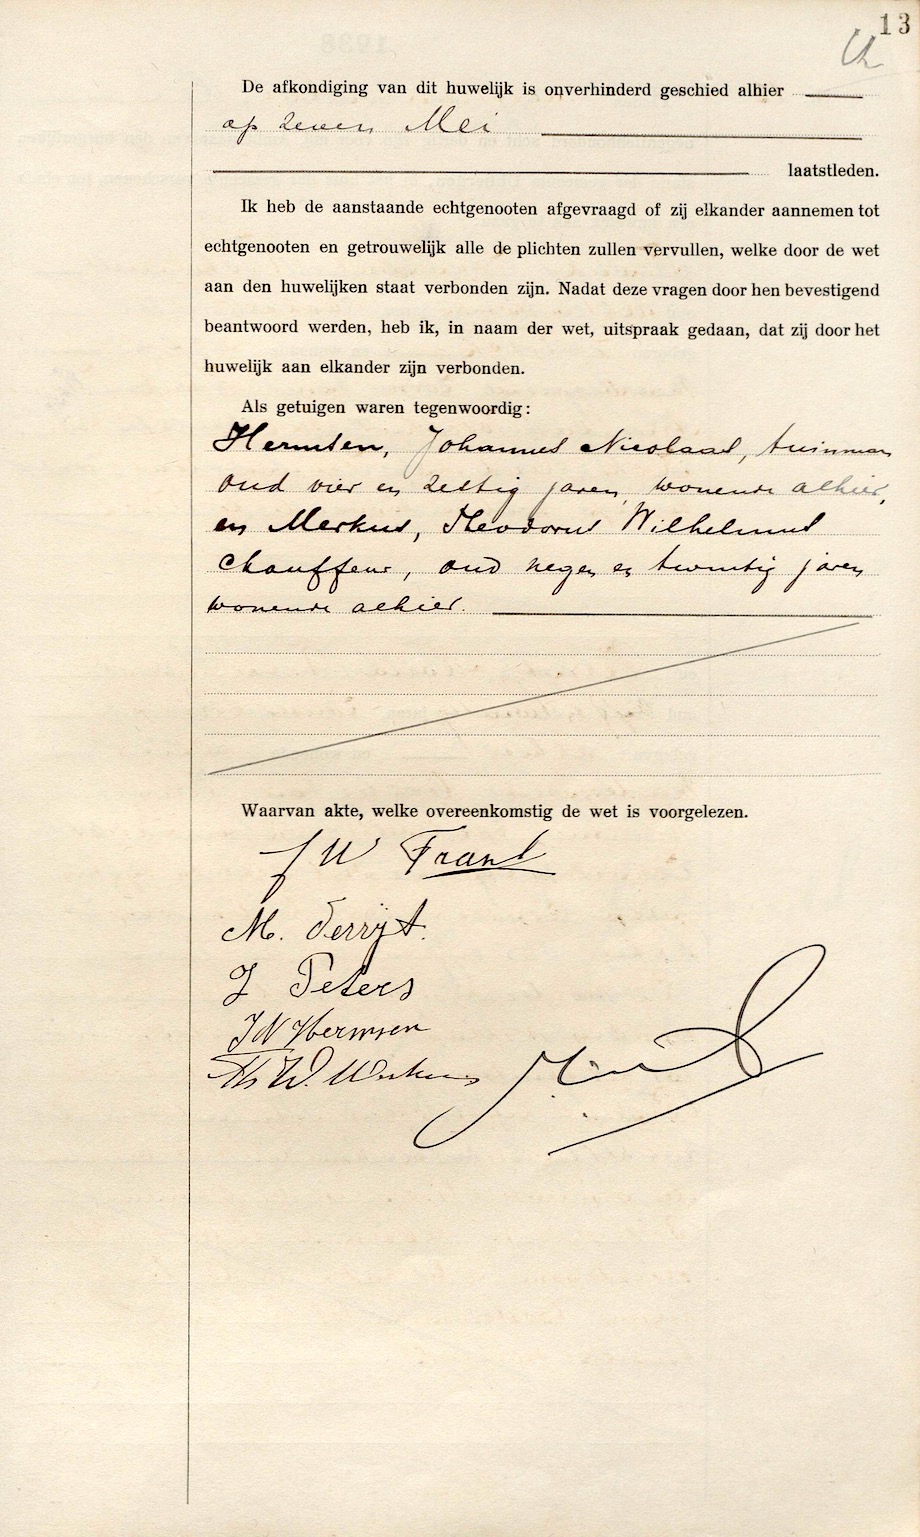 13
De afkondiging van dit huwelijk is onverhinderd geschied alhier
op zeven Mei
laatstleden.
Ik heb de aanstaande echtgenooten afgevraagd of zij elkander aannemen tot
echtgenooten en getrouwelijk alle de plichten zullen vervullen, welke door de wet
aan den huwelijken staat verbonden zijn. Nadat deze vragen door hen bevestigend
beantwoord werden, heb ik, in naam der wet, uitspraak gedaan, dat zij door het
huwelijk aan elkander zijn verbonden.
Als getuigen waren tegenwoordig:
Hermsen, Johannes Nicolaas, tuinman
oud vier en zestig jaren, wonende alhier,
en Merkus, Theodorus Wilhelmus
chauffeur, oud negen en twintig jaren
wonende alhier.
Waarvan akte, welke overeenkomstig de wet is voorgelezen.
J W Frans
M. Derrijt.
J Peters
J N Hermsen
Th W. Merkus